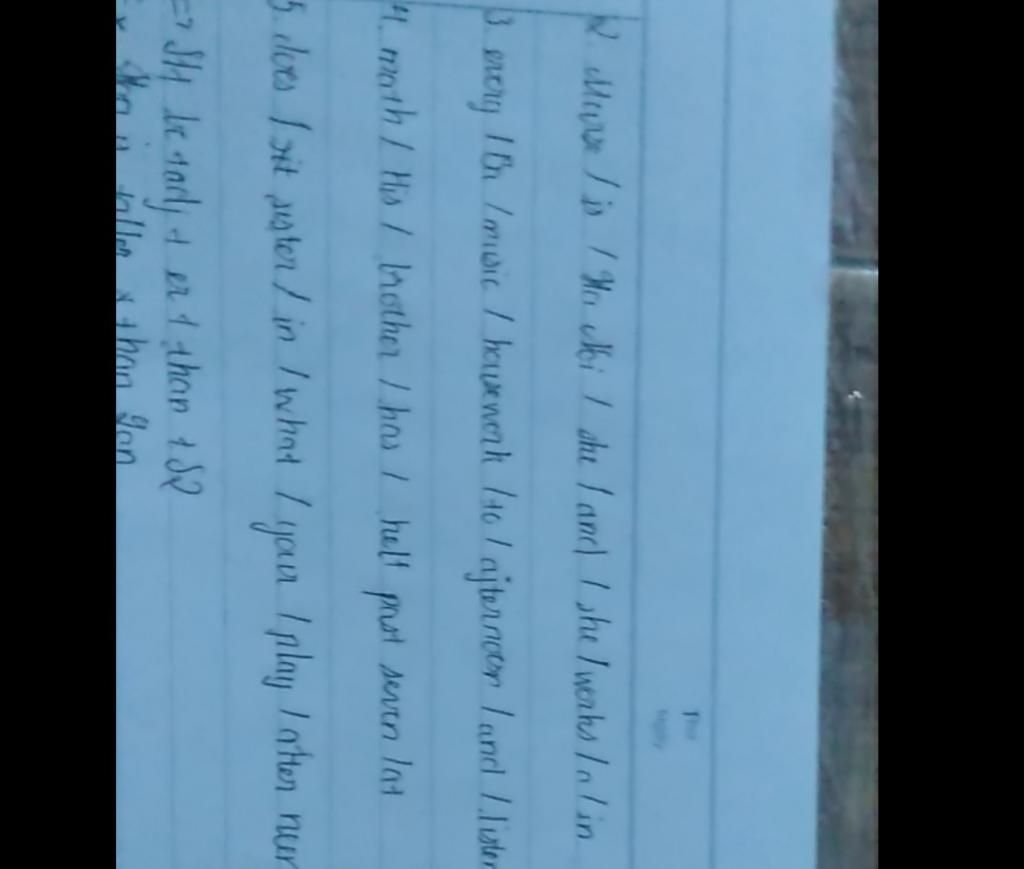 2. Nurse / is / Ha Noi / she / and / she / works / a / in
3. every / Ba / music / housework / to / afternoon / and / listen
4. math / His / brother / has / half past seven / at
5. does / sister / in / what / your / play / often
=> S1 be + adj + er + than + S2
taller than